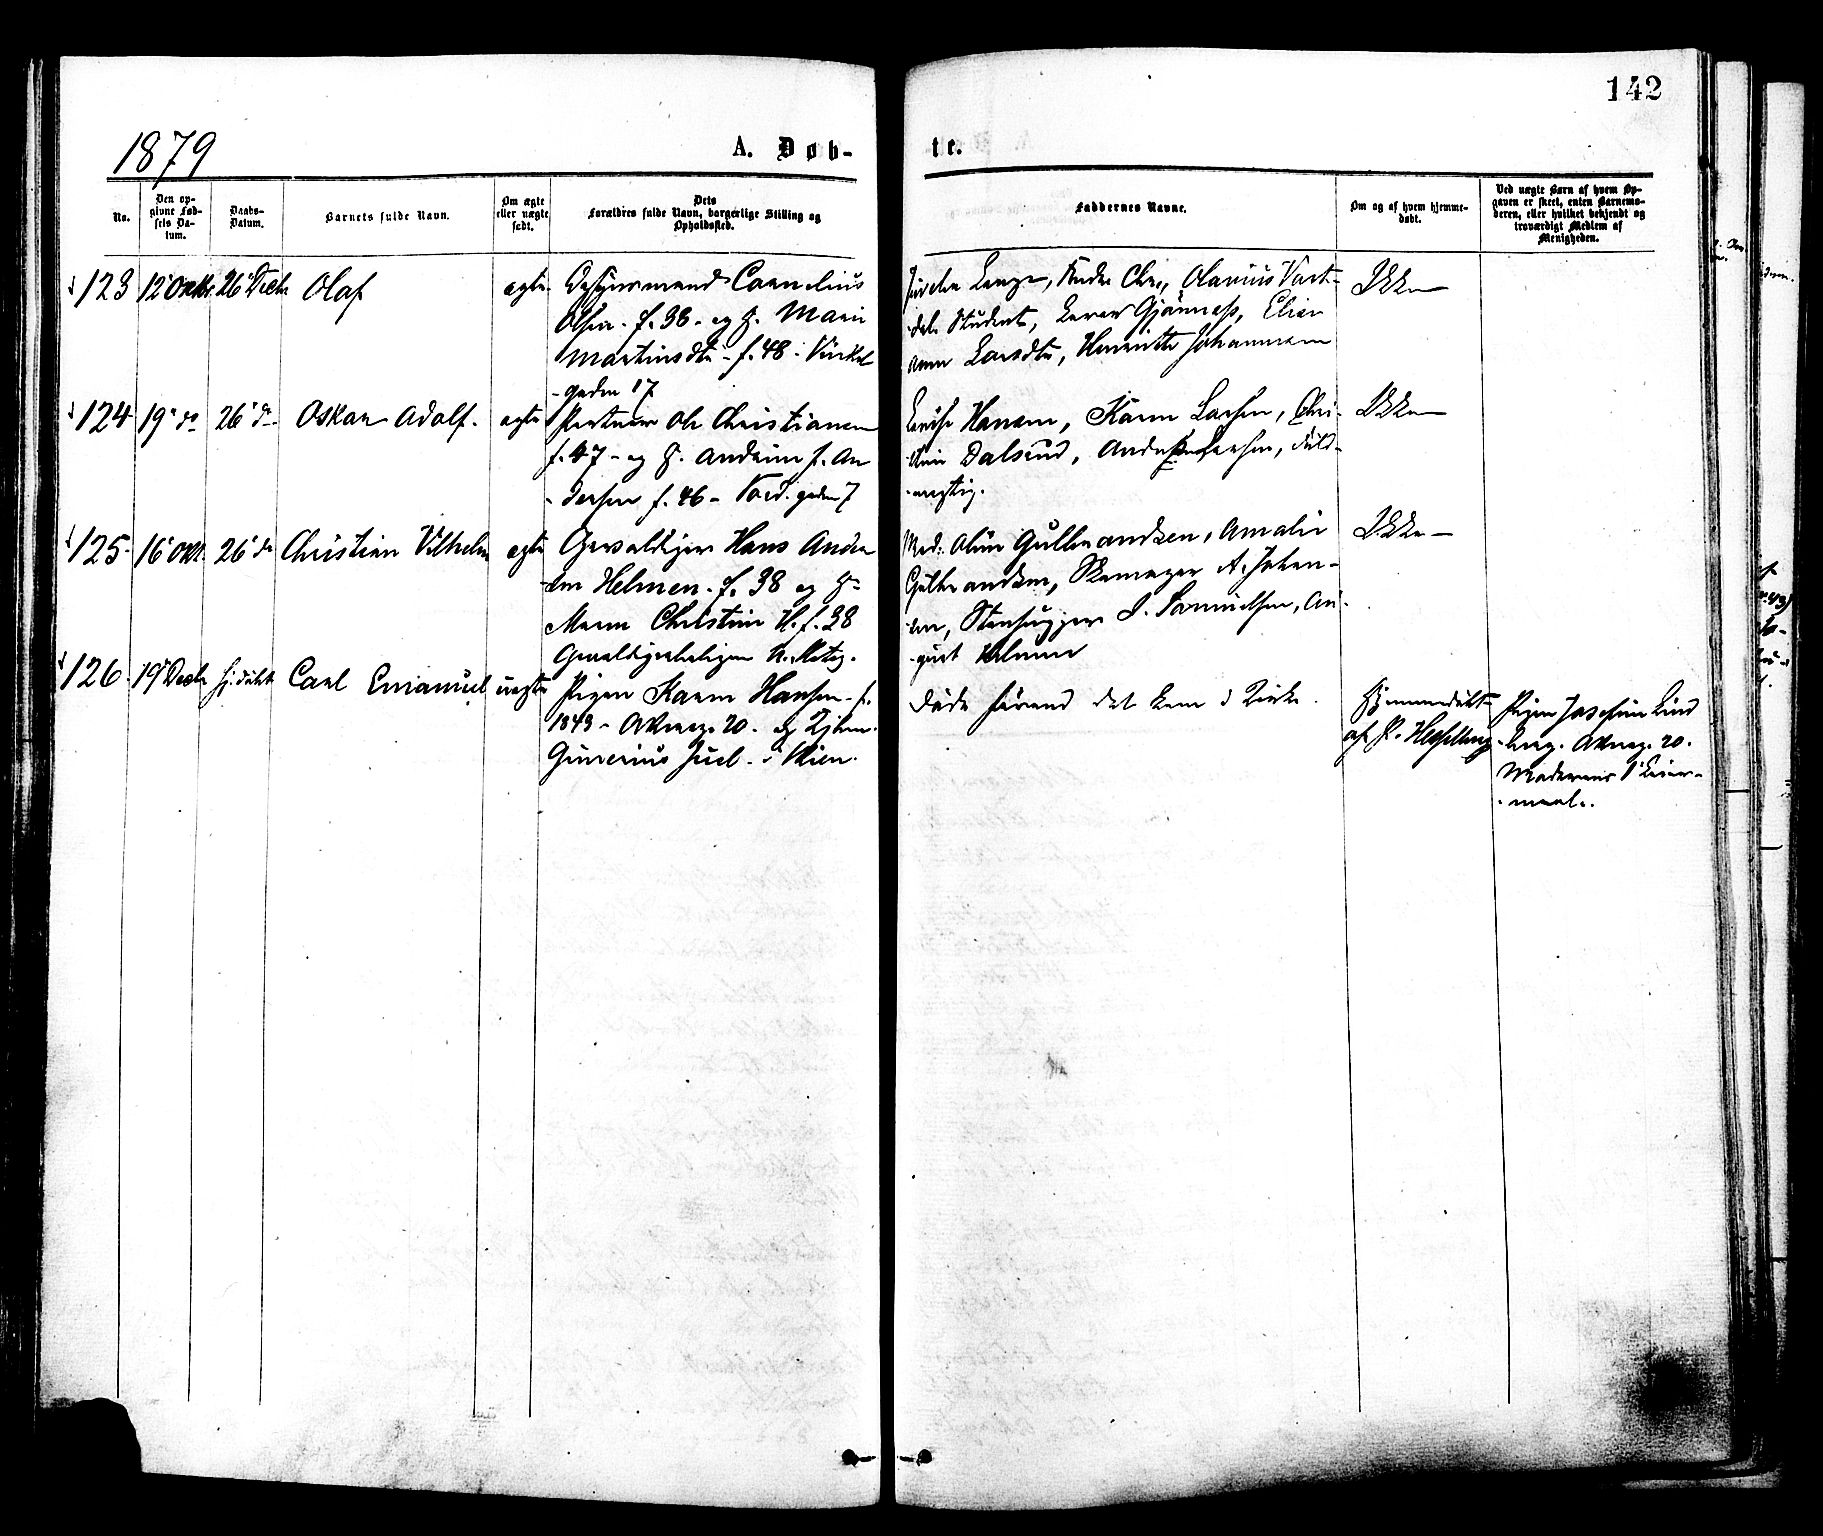 142
1879
A. Døb-
te.
No.
Den op-
givne Fød-
sels Da-
tum.
Daabs-
Datum.
Barnets fulde Navn.
Om ægte
eller uægte
født.
Dets
Forældres fulde Navn, borgerlige Stilling og
Opholdssted.
Faddernes Navne.
Om og af hvem hjemme-
døbt.
Ved uægte Barn af hvem Op-
gaven er skeet, enten Barnemo-
deren, eller hvilket bekjendt og
troværdigt Medlem af
Menigheden.
123 12' Oktbr 26' Decbr Olaf ægte
Cornelius
Olsen. f. 38 - og H. Marie
Martinsdtr - f. 48 - Vinkel
- gaden 17
Olavius
Student,
Larsdtr, Henriette Johannesen
Ikke
124 19' do 26' do Oskar Adolf. ægte
Ole Christiansen
f. 47 - og H. Andrine f. An
- dersen f. 46 - gaden 7
Hansen, Karen Larsen, Chri-
Dalsrud, Larsen, Fuld-
- mægtig.
Ikke
125 16' Okt. 26' do Christian Vilhelm ægte
Gevaldiger Hans Andre
Helmen. f. 38 og H.
Maren Christine H. f. 38
Mad. Gulbrandsen, Amalie
Gulbrandsen, Skomager A. Johan-
sen, Stenhugger I. Samuelsen, Au-
- gust Helmen
Ikke
126 19' Decbr hj. døbt Carl Emanuel uægte
Pigen Karen Hansen - f.
1843 - 20. og
Gunerius Juel - i Skien.
Døde førend det kom i Kirke.
Hjemmedøbt
af P. Hesselberg
Pigen Josefine Lind
- berg. 20.
Moderens 1' Leier-
- maal.